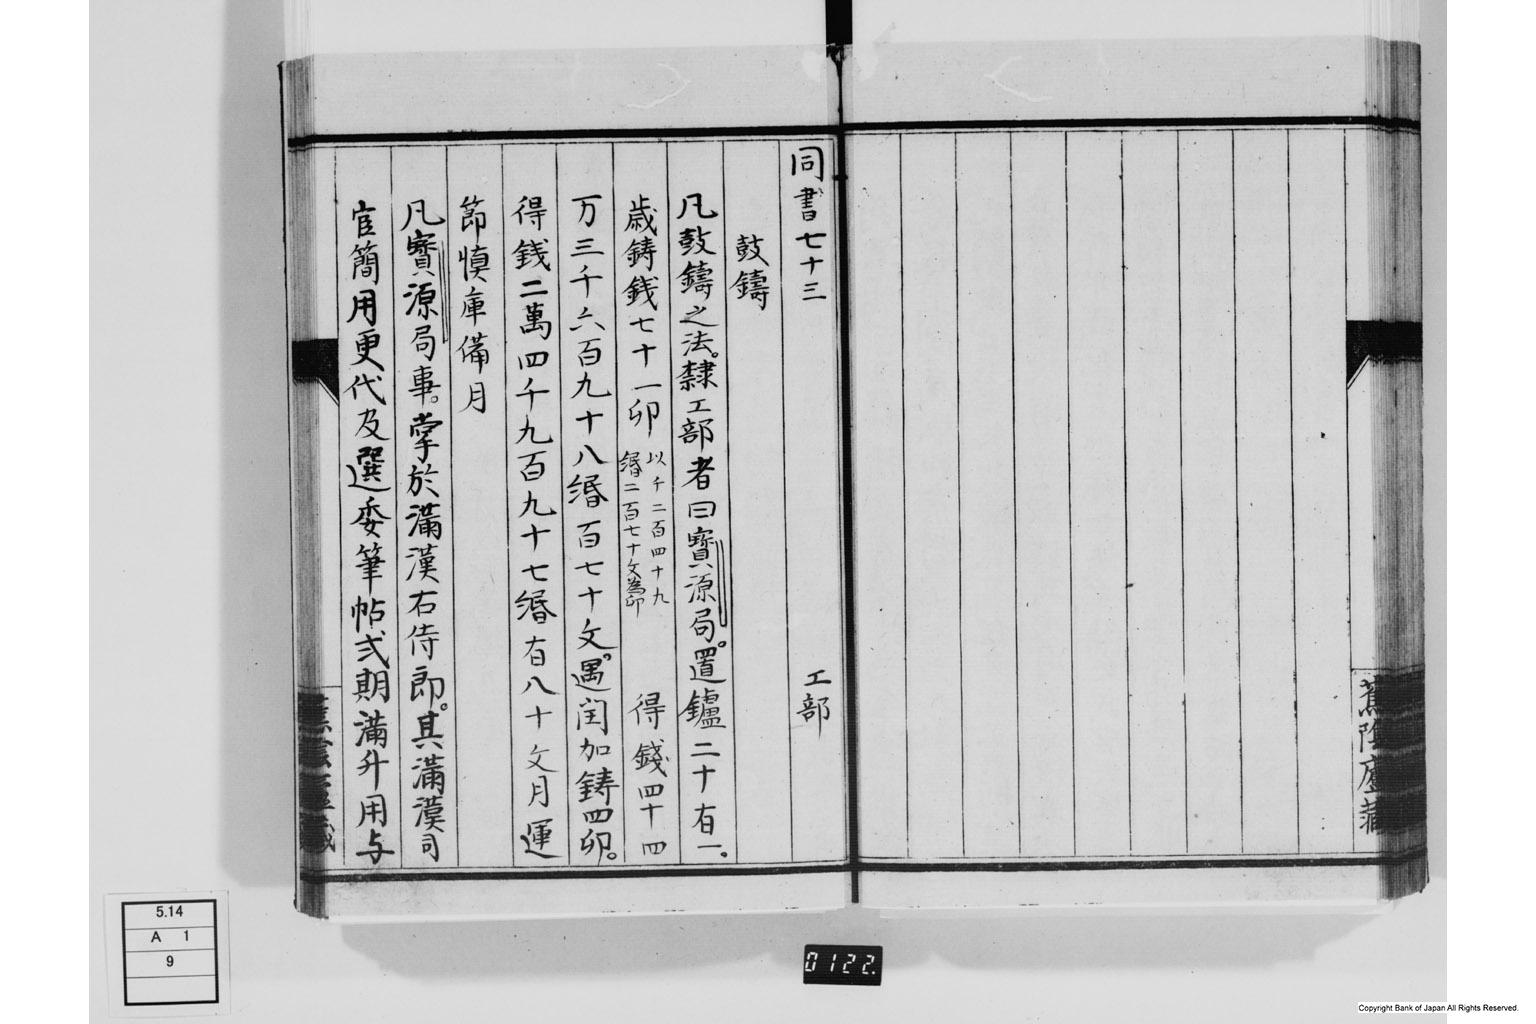 同書七十三　　　　　工部
鼓鑄
凡鼓鑄之法。隸工部者曰寳源局。置鑪二十有一。
歳鋳銭七十一卯
以千二百四十九
緡二百七十文為卯
得錢四十四
万三千六百九十八緡百七十文。遇閏加鋳四卯。
得銭二萬四千九百九十七緡有八十文月運
節慎庫備月
凡寳源局事。掌於滿漢右侍郎。其滿漢司
官簡用更代及選委筆帖式期滿升用与
蕉陰廬蔵
5.14
A 1
9
0122.
Copyright Bank of Japan All Rights Reserved.